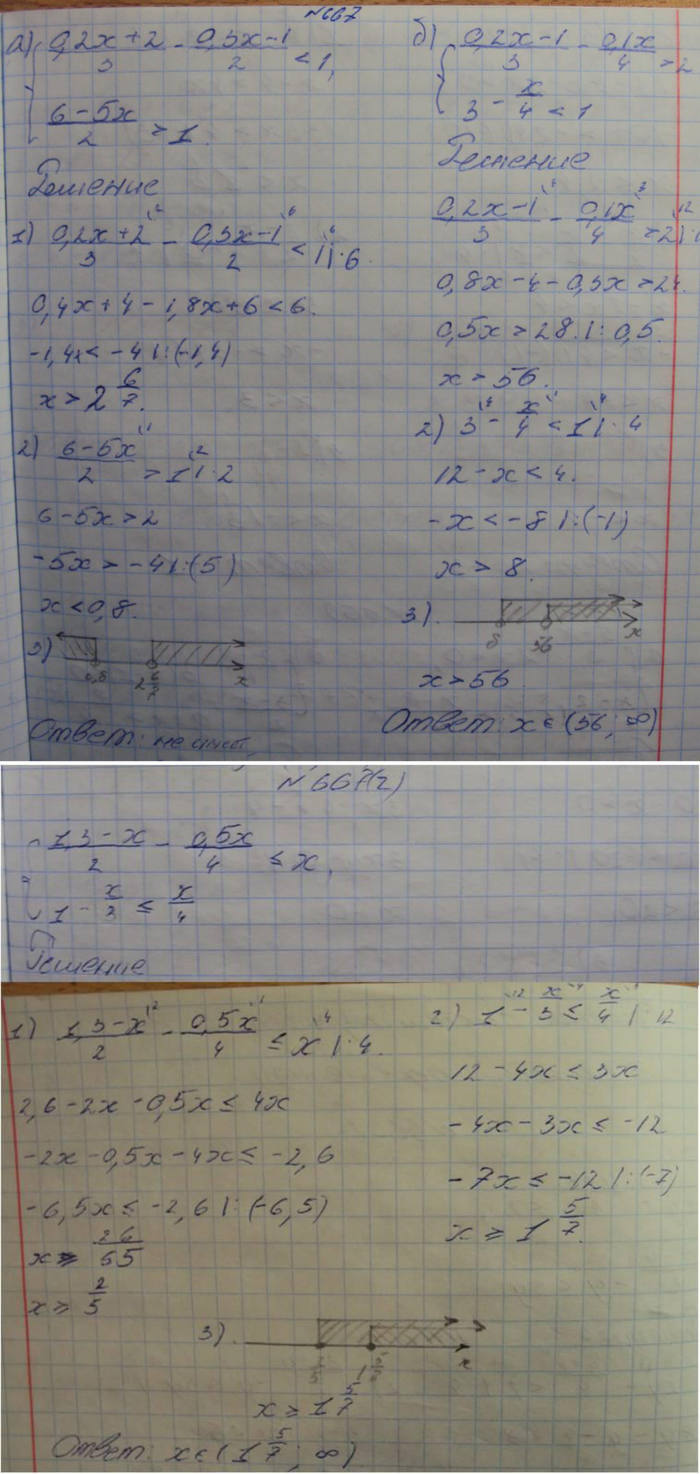 N667
а) (0,2x+2)/3 - (0,3x-1)/2 < 1,
(6-5x)/2 > 1.
Решение
1) (0,2x+2)/3 \2 - (0,3x-1)/2 \6 < 1 \6 |·6.
0,4x+4-1,8x+6<6.
-1,4x<-4 |:(-1,4)
x>2 6/7.
2) (6-5x)/2 \1 > 1 \2 |·2
6-5x>2
-5x>-4 |:(5)
x<0,8.
3)
0,8 2 6/7 x
Ответ:
б) (0,2x-1)/3 - (0,1x)/4 > 2
3 - x/4 < 1
Решение
(0,2x-1)/3 \4 - (0,1x)/4 \3 > 2 \12
0,8x-4-0,3x>24.
0,5x>28 |:0,5.
x>56.
2) 3 \4 - x/4 \1 < 1 \4 |·4
12-x<4.
-x<-8 |:(-1)
x>8.
3).
8 56 x
x>56
Ответ: x∈(56; ∞)
N667(2)
(1,3-x)/2 - (0,5x)/4 ≤ x,
1 - x/3 ≤ x/4
Решение
1) (1,3-x)/2 \2 - (0,5x)/4 \1 ≤ x \4 |·4.
2,6-2x-0,5x≤4x
-2x-0,5x-4x≤-2,6
-6,5x≤-2,6 |:(-6,5)
x≥ 26/65
x≥ 2/5
2) 1 \12 - x/3 \4 ≤ x/4 |·12
12-4x≤3x
-4x-3x≤-12
-7x≤-12 |:(-7)
x≥1 5/7.
3).
2/5 1 5/7 x
x≥1 5/7
Ответ: x∈(1 5/7; ∞)